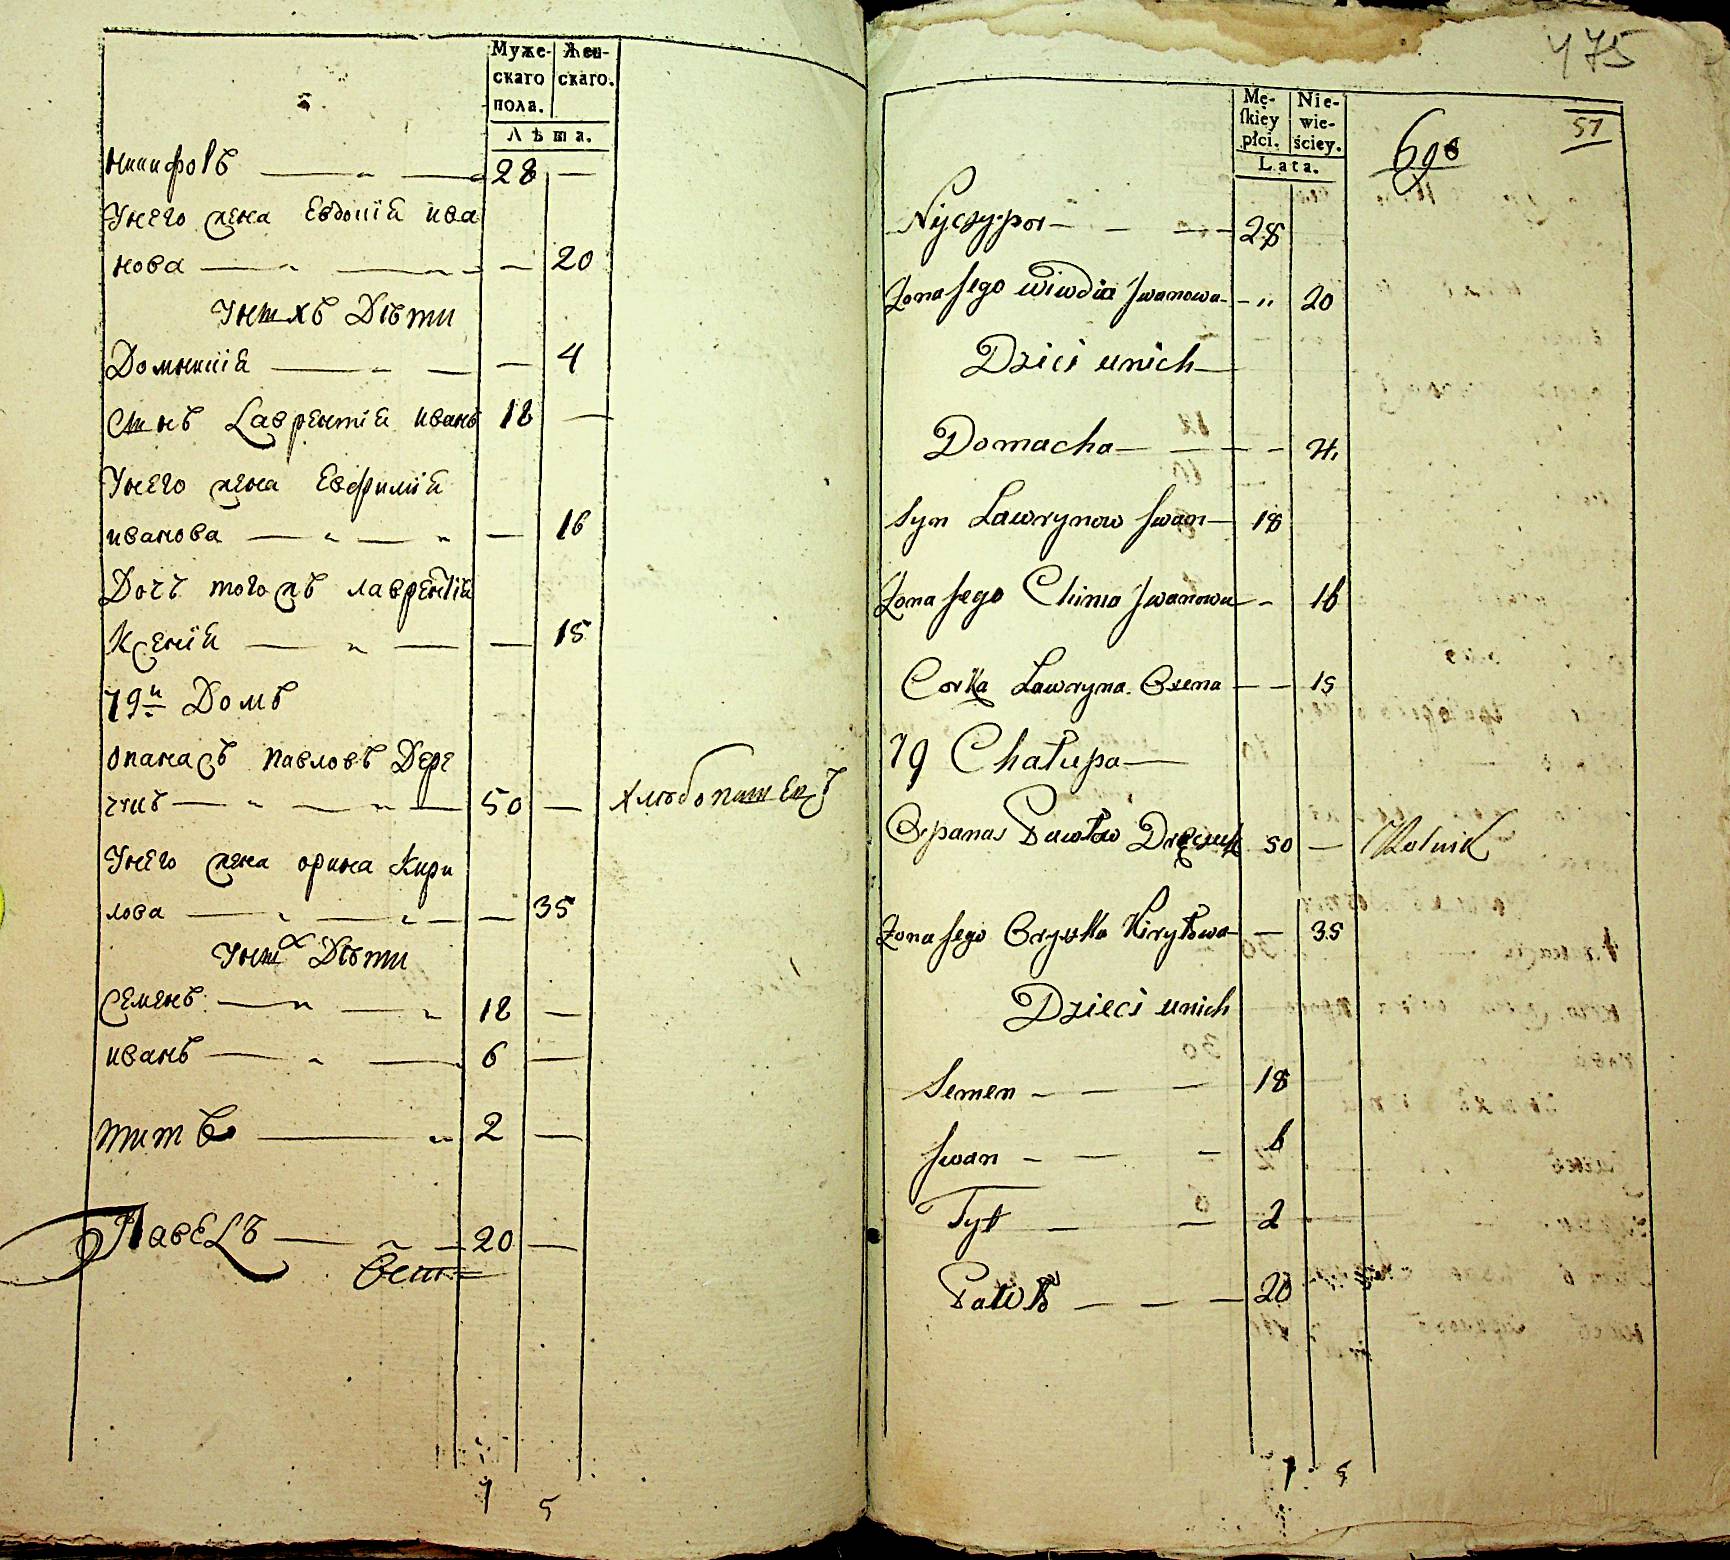 Муже-
скаго
пола.
Жен-
скаго.
Лѣта.
Никифоръ — „ — 28 —
Унего жена Евдокія ива
нова — „ — „ — — 20
Унихъ Дѣти
Домникія — „ — — 4
Сынъ Лаврентій иванъ 18 —
Унего жена Евфимія
иванова — „ — „ — 16
Дочь тогожъ лаврентія
Ксенія — „ — — 15
79й Домъ
опанасъ павловъ Дере
чикъ — „ — „ — 50 — хлѣбопашецъ
Унего жена орина Кири
лова — „ — „ — — 35
Уних Дѣти
Семенъ — „ — „ 18 —
иванъ — „ — 6 —
титъ — „ 2 —
Павелъ — „ — 20 —
7 5
475
Mę-
ſkiey
płci.
Nie-
wie-
ściey.
Lata.
51
Nyczypor — — — 28
Żona Jego Wiwdia Jwanowa - „ 20
Dzieci unich —
Domacha — — - - 4
Syn Lawrynow Jwan — 18
Żona Jego Chima Jwanowa - 16
Corka Lawryna Oxena — — 15
79 Chałupa —
Opanas Pawłow Dreczyk 50 — Rolnik
Żona Jego Oryszka Kiryłowa — 35
Dzieci unich
Semen — — — 18
Jwan — — — 6
Tyt — — 2
Paweł — — — 20
7 5